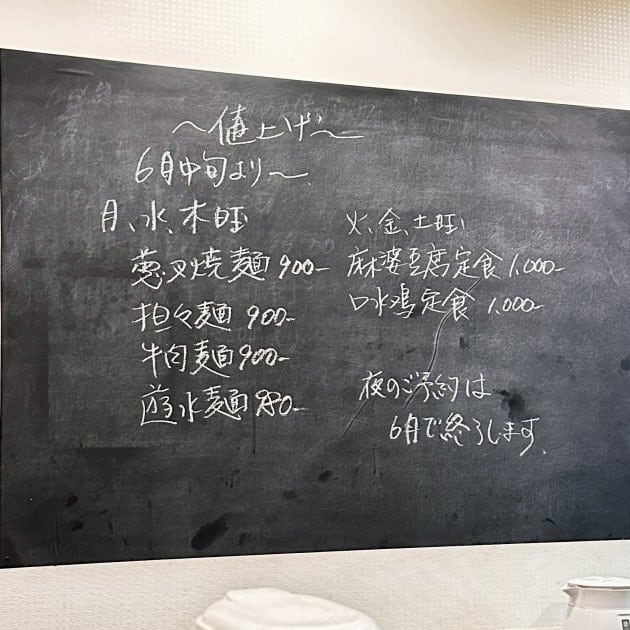 〜値上げ〜
6月中旬より〜
月、水、木旺
葱叉焼麺 900-
担々麺 900-
牛肉麺 900-
水麺 980-
火、金、土旺
麻婆豆腐定食 1,000-
口水鶏定食 1,000-
夜のご予約は
6月で終了します.